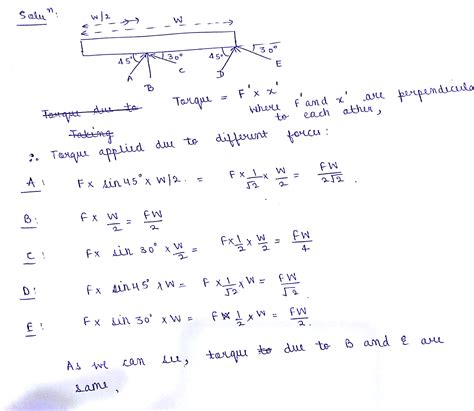 Soluⁿ:
W/2 W
45° 30° 45° 30°
A B C D E
Torque due to Torque = F' × x'
where F' and x' are perpendicula
Taking to each other,
∴ Torque applied due to different forces:
A: F× sin45° × W/2 = F× 1/√2 × W/2 = FW/2√2.
B: F× W/2 = FW/2
C: F× sin 30° × W/2 = F×1/2 × W/2 = FW/4
D: F× sin45° × W = F × 1/√2 × W = FW/√2.
E: F× sin 30° × W = F× 1/2 × W = FW/2.
As we can see, torque to due to B and E are
same,